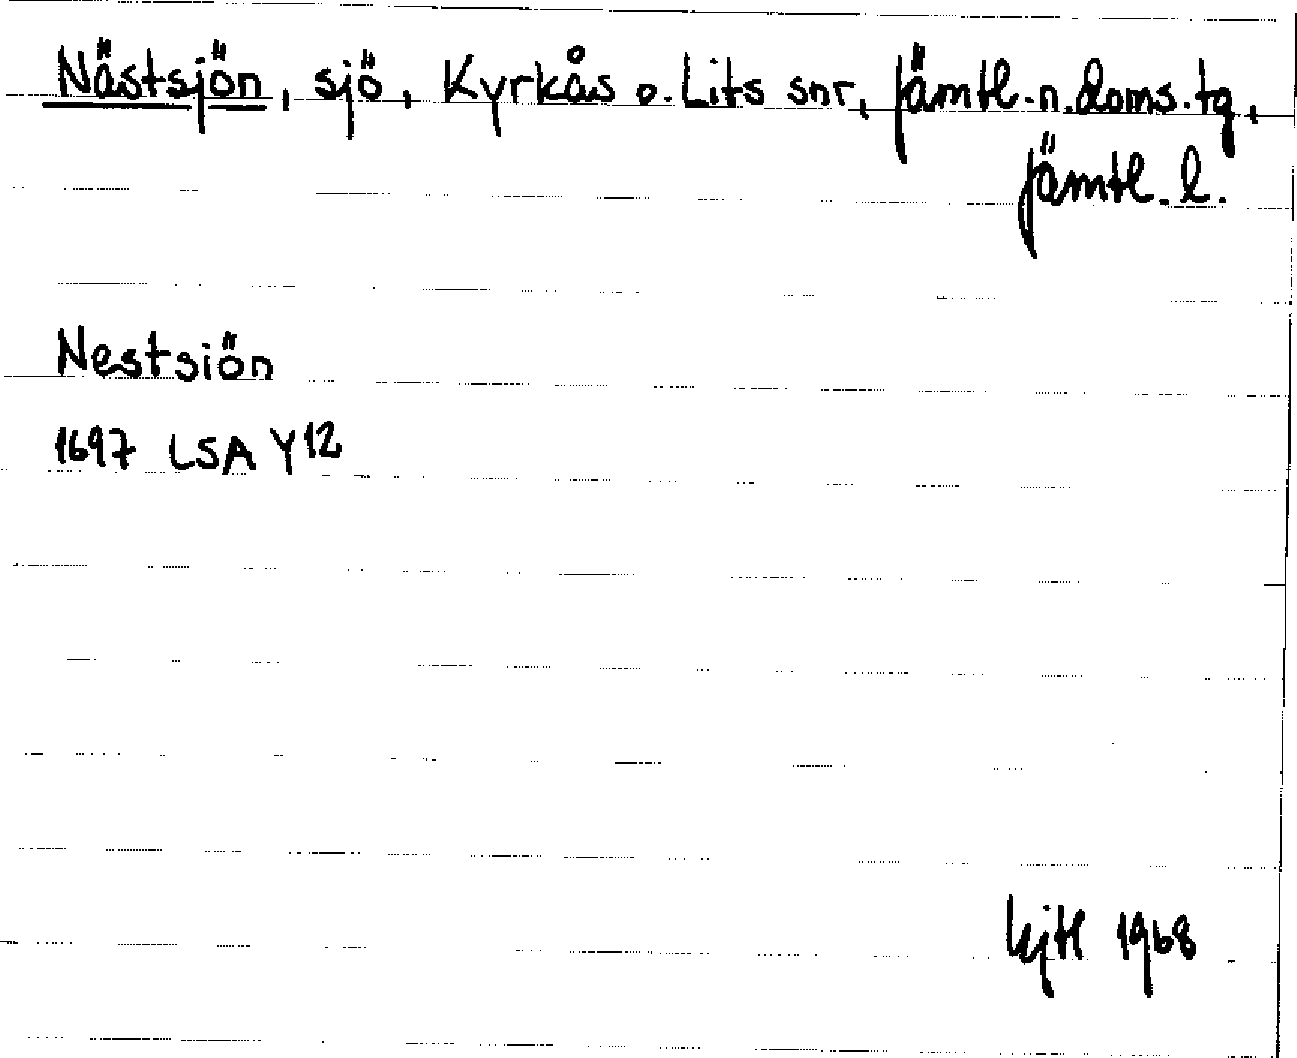 Nästsjön, sjö, Kyrkås o. Lits snr, Jämtl. n. doms. tg,
Jämtl. l.
Nestsiön
1697 LSA Y12
1968